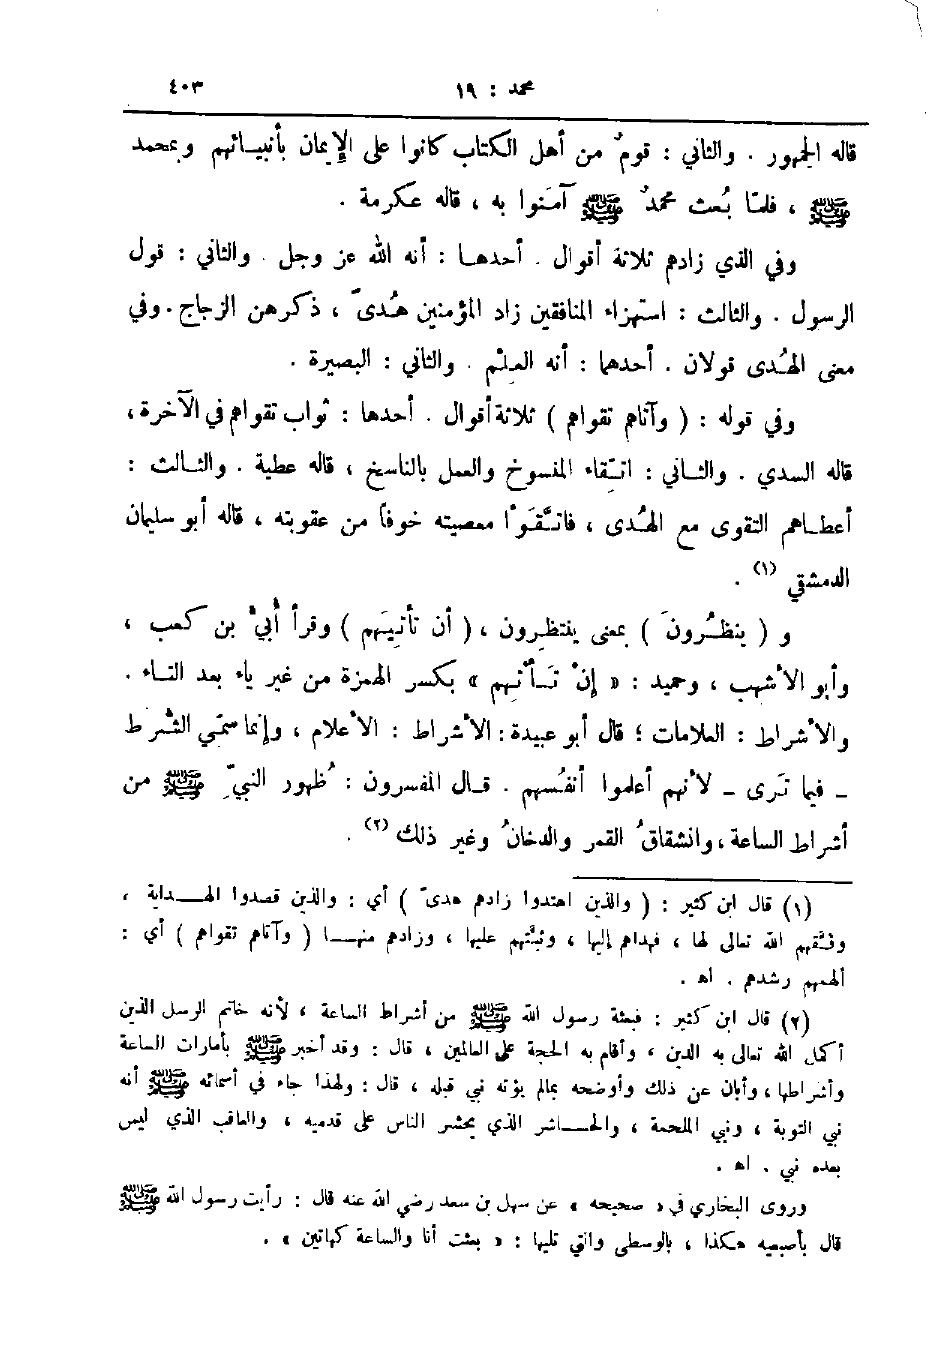 محمد : ١٩ ٤٠٣
قاله الجمهور . والثاني : قومٌ من أهل الكتاب كانوا على الإيمان بأنبيـائهم وبمحمد
ﷺ ، فلمّا بُعث محمدٌ ﷺ آمَنوا به ، قاله عكرمة .
وفي الذي زادهم ثلاثة أقوال . أحدهـا : أنه الله عز وجل . والثاني : قول
الرسول . والثالث : استهزاء المنافقين زاد المؤمنين هُدىً ، ذكرهن الزجاج . وفي
معنى الهُدى قولان . أحدهما : أنه العِلْم . والثاني : البصيرة .
وفي قوله : ( وآتاهم تقواهم ) ثلاثة أقوال . أحدها : ثواب تقواهم في الآخرة ،
قاله السدي . والثـاني : اتِّقاء المنسوخ والعمل بالناسخ ، قاله عطية . والثـالث :
أعطـاهم التقوى مع الهُدى ، فاتَّقَوْا معصيته خوفاً من عقوبته ، قاله أبو سليمان
الدمشقي (١) .
و ( ينظُـرونَ ) بمعنى ينتظِرون ، ( أن تأتيَهم ) وقرأ أُبيّ بن كعب ،
وأبو الأشهب ، وحميد : « إِنْ تَـأْتِهم » بكسر الهمزة من غير ياء بعد التـاء .
والأشراط : العلامات ؛ قال أبو عبيدة : الأشراط : الأعلام ، وإنما سمّي الشُّرَط
ـ فيما تَرى ـ لأنهم أعلموا أنفُسهم . قـال المفسرون : ظُهور النبيِّ ﷺ من
أشراط الساعة ، وانشقاقُ القمر والدخانُ وغير ذلك (٢) .
(١) قال ابن كثير : ( والذين اهتدوا زادهم هدىً ) أي : والذين قصدوا الهـداية ،
وفَّقهم الله تعالى لها ، فهداهم إليها ، وثبَّتهم عليها ، وزادهم منهـا ( وآتاهم تقواهم ) أي :
ألهمهم رشدهم . اهـ .
(٢) قال ابن كثير : فبعثة رسول الله ﷺ من أشراط الساعة ، لأنه خاتم الرسل الذين
أكمل الله تعالى به الدين ، وأقام به الحجة على العالمين ، قال : وقد أخبر ﷺ بأمارات الساعة
وأشراطها ، وأبان عن ذلك وأوضحه بمالم يؤته نبي قبله ، قال : ولهذا جاء في أسمائه ﷺ أنه
نبي التوبة ، ونبي الملحمة ، والحـاشر الذي يحشر الناس على قدميه ، والعاقب الذي ليس
بعده نبي . اهـ .
وروى البخاري في « صحيحه » عن سهل بن سعد رضي الله عنه قال : رأيت رسول الله ﷺ
قال بأصبعيه هكذا ، بالوسطى والتي تليها : « بعثت أنا والساعة كهاتين » .